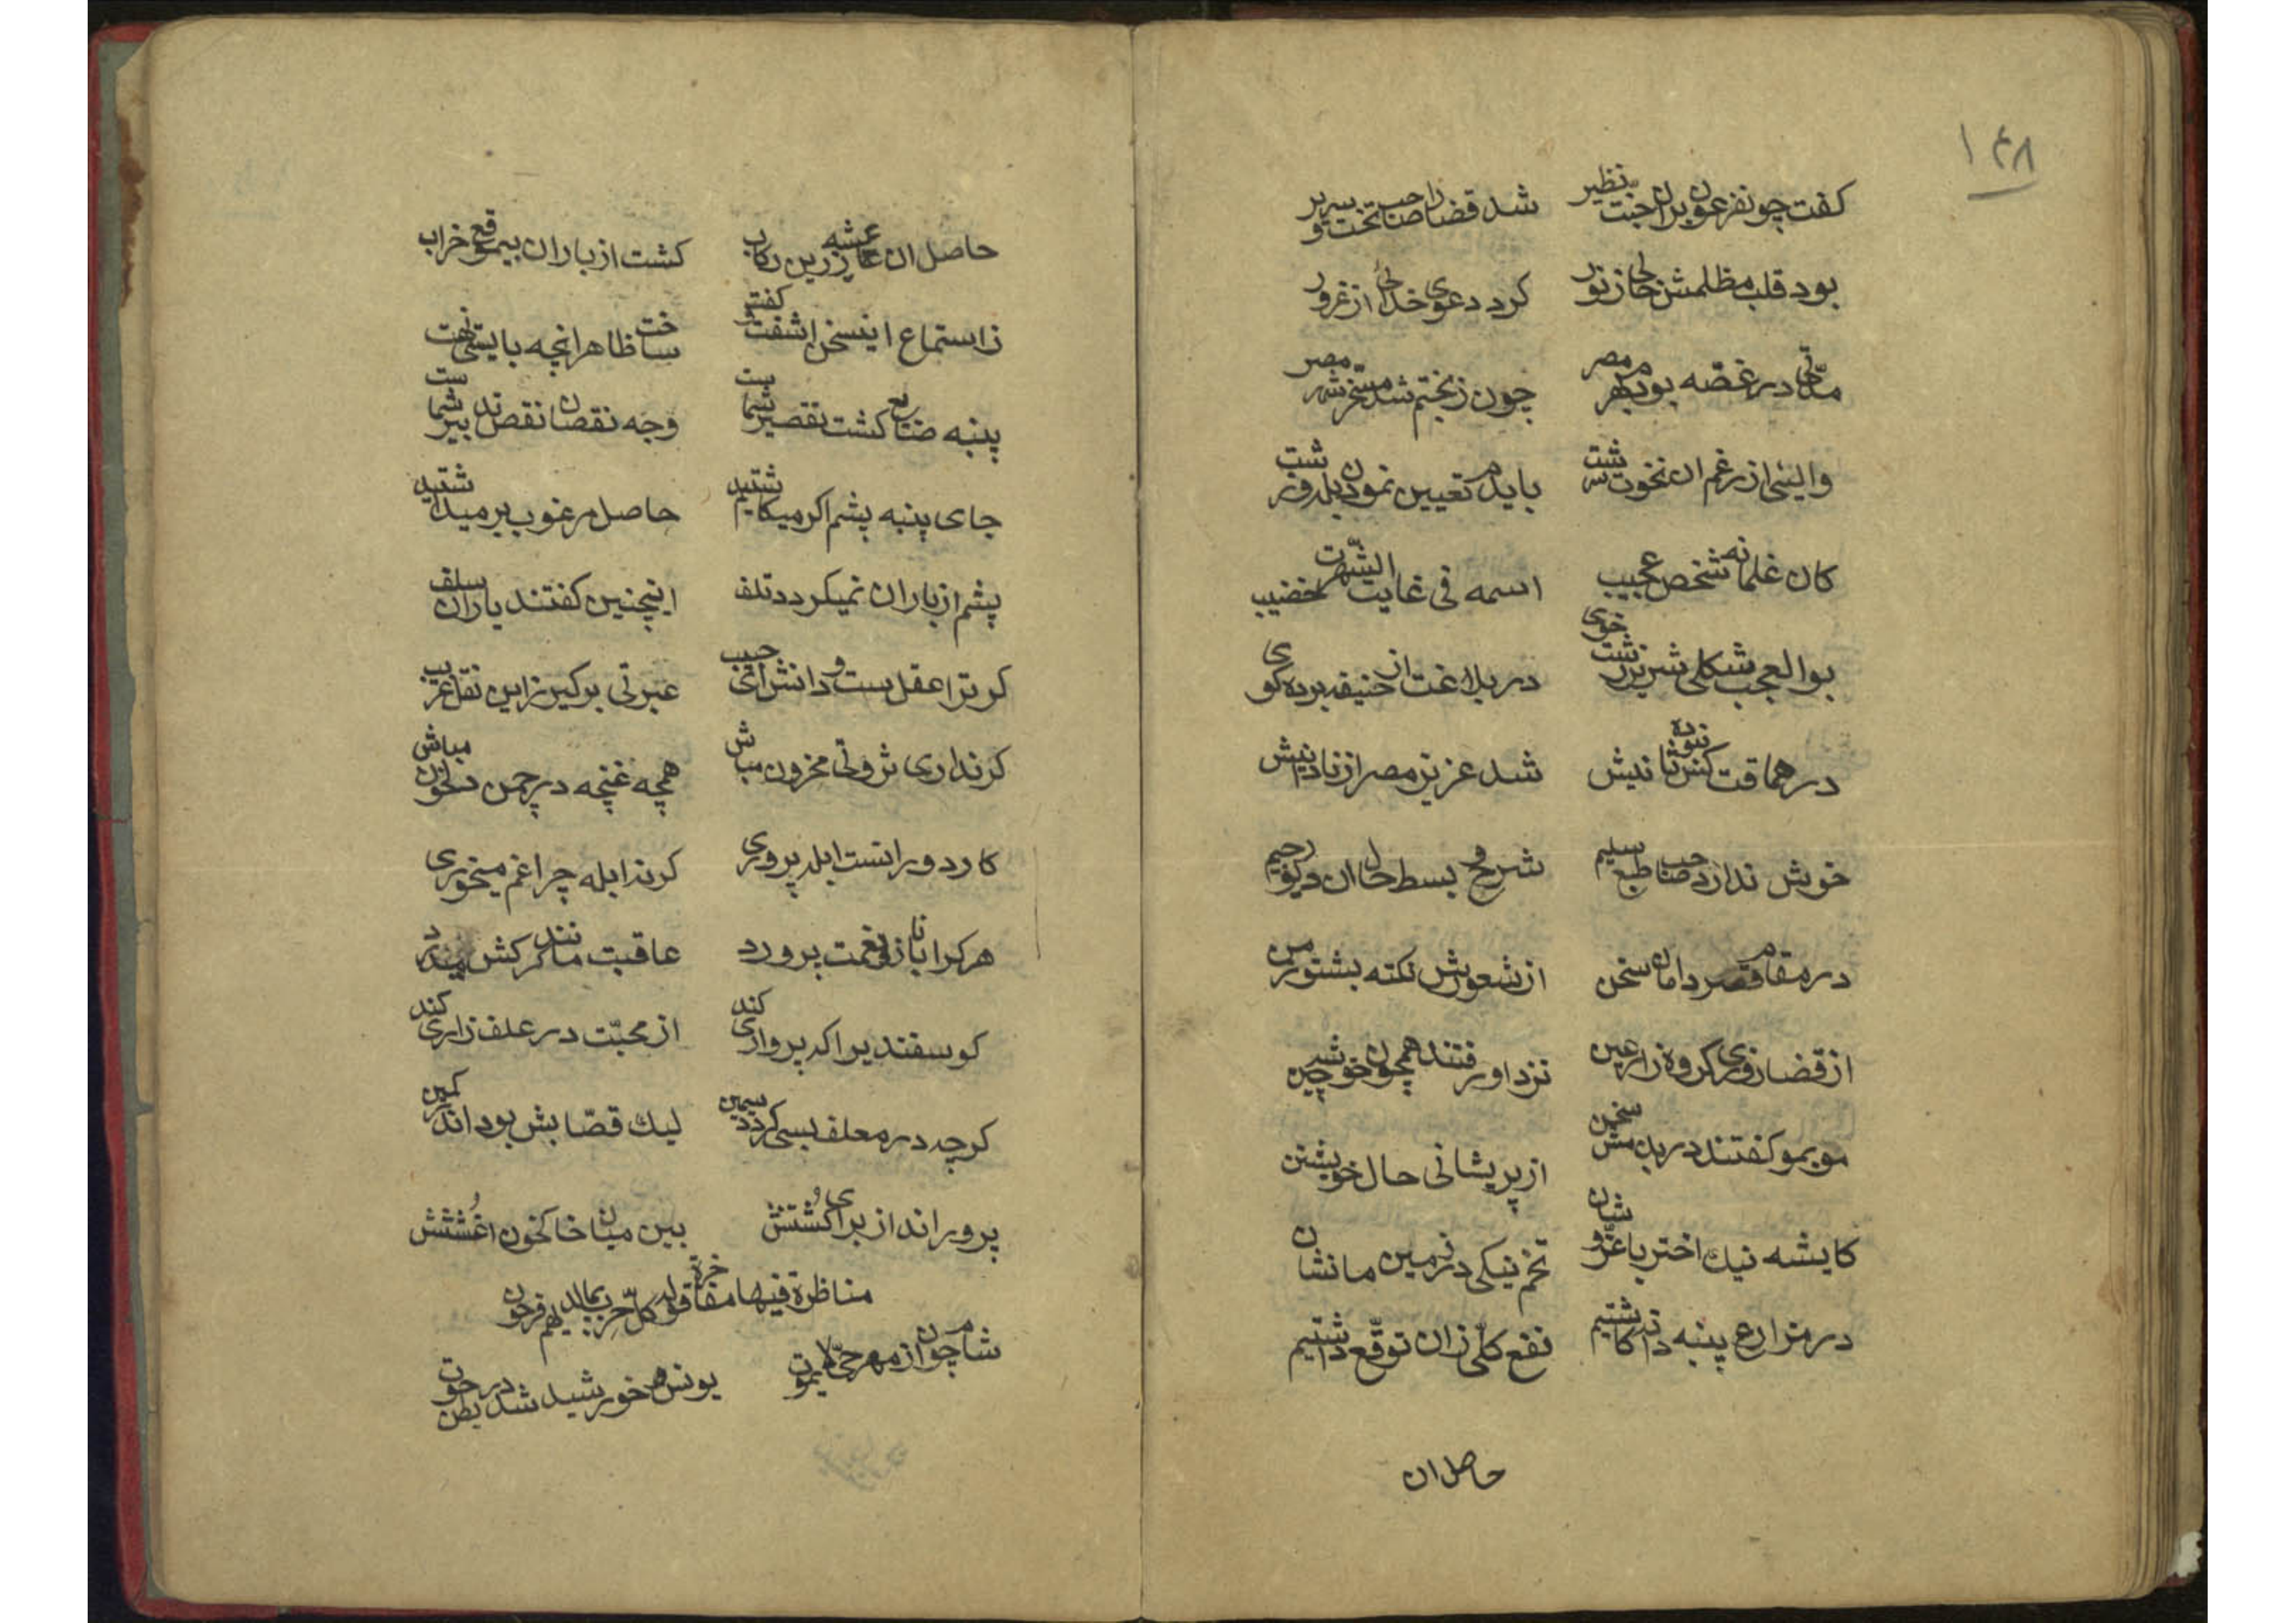 ۱۴۸
کفت چو نفرعون بران جنت بنظیر شد قضا را صاحب تخت و سریر
بود قلب مظلمش خالی ز نور کرد دعوی خدائی از غرور
مدّتی در غصّه بود بهر مصر چون ز بختم شد مسخّر شهر مصر
والیئی از رغم ان نخوت سرشت بایدم تعیین نمودن بلد و زشت
کان غلمانه شخص عجیب اسمه فی غایت الشّهرت خضیب
بوالعجب شکلی شریر زشت خوی در بلاغت از حنیفه برده کوی
در حماقت کس نبوده ثانیش شد عزیز مصر از نادانیش
خوش ندارد صاحب طبع سلیم شرح و بسط حال ان دیو رجیم
در مقام قصر دامان سخن از شعورش نکته بشنو ز من
از قضا روزی کروه زارعین نزد او رفتند همچون خوشه چین
مو بمو کفتند در بدمش سخن از پریشانی حال خویشتن
کایشه نیك اختر با عزّ و شان تخم نیکی در زمین ما نشان
در مزارع پنبه دانه کاشتیم نفع کلّی زان توقّع داشتیم
حاصل ان
حاصل ان عمّا زرین رکاب کشت از باران بیموقع خراب
ز استماع اینسخن اشفت و کفت ساخت ظاهر انچه بایستی نهفت
پنبه ضایع کشت تقصیر شماست وجه نقصان نقص تدبیر شماست
جای پنبه پشم اکر میکاشتید حاصل مرغوب بر میداشتید
پشم از باران نمیکردد تلف اینچنین کفتند یاران سلف
کر ترا عقل ست و دانش ای حبیب عبرتی بر کیر زاین نقل غریب
کر نداری ثروتی محزون مباش همچه غنچه در چمن دلخون مباش
کار دورانست ابله پروری کر نه ابله چرا غم میخوری
هر کرا با ناز و نعمت پرورد عاقبت مانند کرکش میدرد
کوسفندیرا که پرواری کند از محبّت در علف زاری کند
کرچه در معلف بسی کردد سمین لیك قصّابش بود اندر کمین
پروراند از برای کُشتنش بین میان خاکخون اغُشتنش
مناظرة فیها مفاخرة قوله کلّ حزب بما لدیهم فرحون
شام چون از مهر حیّ لا یموت یونس خورشید شد در بطن حوت